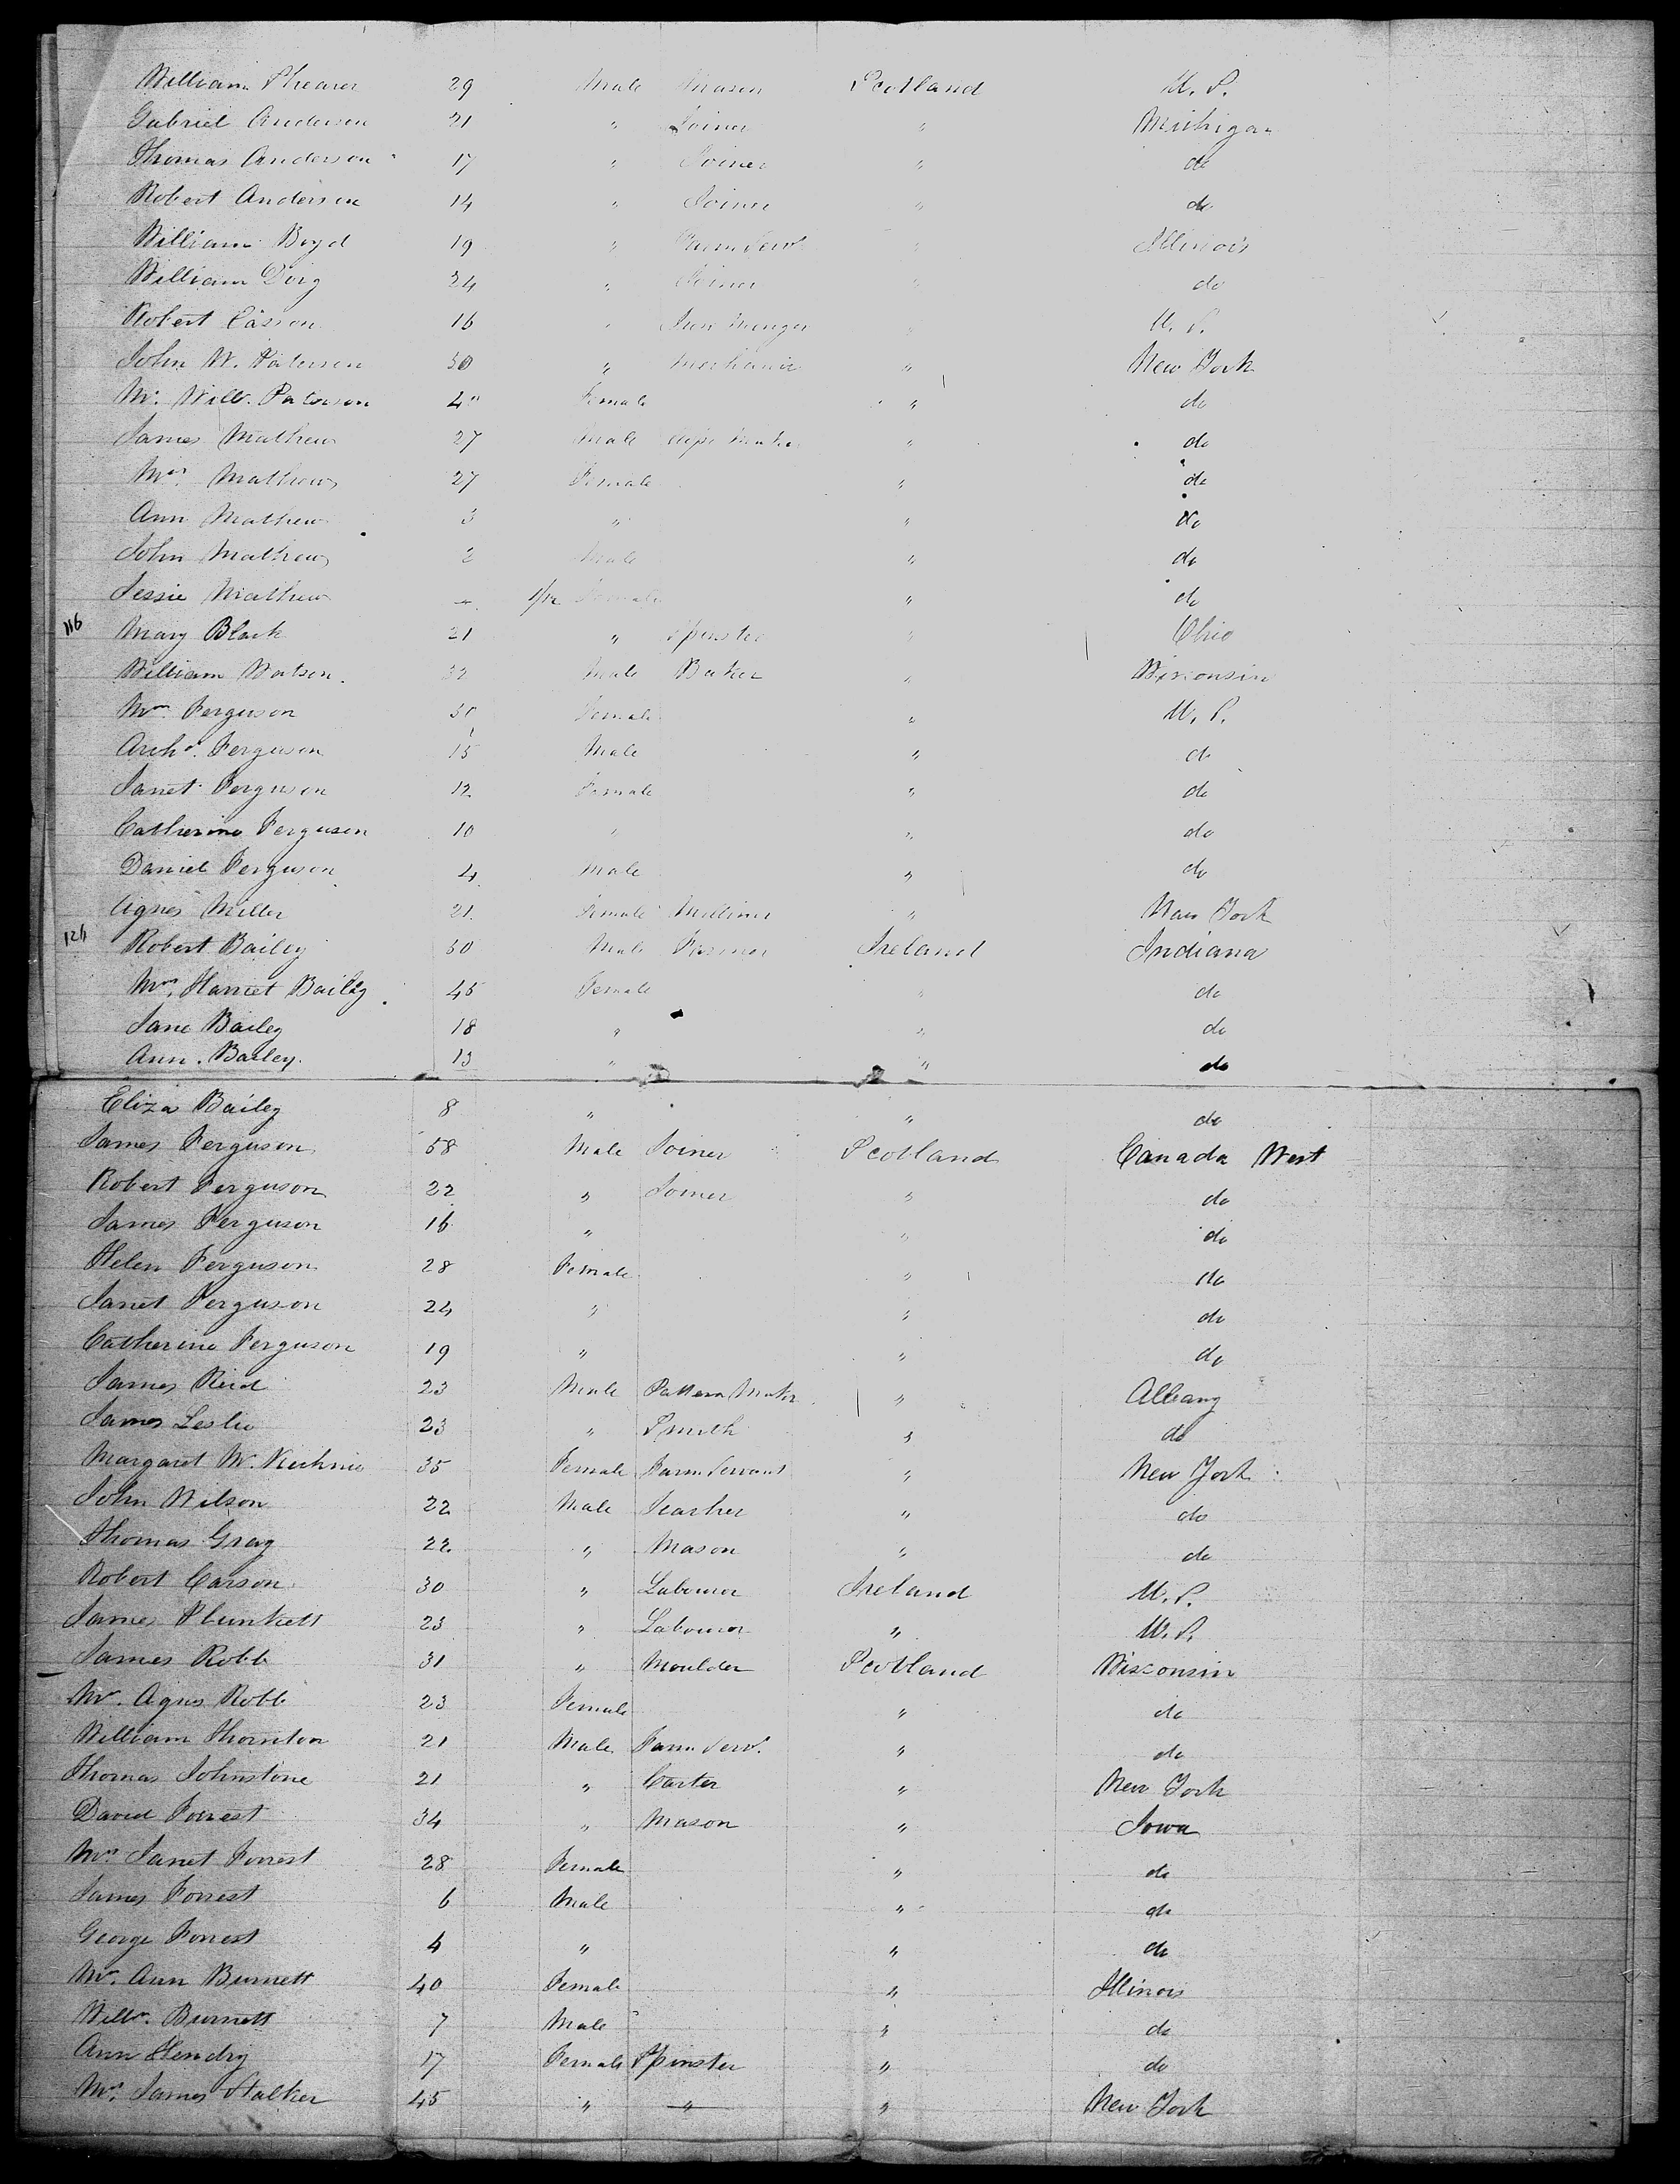 William Shearer 29 Male Mason Scotland U.S.
Gabriel Anderson 21 " Joiner " Michigan
Thomas Anderson 17 " Joiner " do
Robert Anderson 14 " Joiner " do
William Boyd 19 " Farm Servt " Illinois
William Doig 24 " Joiner " do
Robert Casson 16 " Iron Monger " U.S.
John W. Paterson 30 " Mechanic " New York
Mrs Willm. Paterson Female " do
James Mathew 27 Male Maker " do
Mrs. Mathew 27 Female " do
Ann Mathew 3 " " do
John Mathew 2 Male " do
Jessie Mathew Female " do
116 Mary Black 21 " Spinster " Ohio
William Watson 32 Male Baker " Wisconsin
Mrs Ferguson Female " U.S.
Archd. Ferguson 15 Male " do
Janet Ferguson 12 Female " do
Catherine Ferguson 10 " " do
Daniel Ferguson 4 Male " do
Agnes Miller 21 Female Milliner " New York
124 Robert Bailey 50 Male Farmer Ireland Indiana
Mrs. Harriet Bailey 45 Female " do
Jane Bailey 18 " " do
Ann. Bailey. 13 " " do
Eliza Bailey 8 " " do
James Ferguson 58 Male Joiner Scotland Canada West
Robert Ferguson 22 " Joiner " do
James Ferguson 16 " " do
Helen Ferguson 28 Female " do
Janet Ferguson 24 " " do
Catherine Ferguson 19 " " do
James Reid 23 Male Pattern Maker " Albany
James Leslie 23 " Smith " do
Margaret Mc. Kechnie 35 Female Farm Servant " New York
John Wilson 22 Male Teacher " do
Thomas Gray 22 " Mason " do
Robert Carson 30 " Labourer Ireland U.S.
James Plunkett 23 " Labourer " U.S.
James Robb 31 " Moulder Scotland Wisconsin
Mrs. Agnes Robb 23 Female " do
William Thornton 21 Male Farm Servt. " do
Thomas Johnstone 21 " Carter " New York
David Forrest 34 " Mason " Iowa
Mrs Janet Forrest 28 Female " do
James Forrest 6 Male " do
George Forrest 4 " " do
Mrs. Ann Burnett 40 Female " Illinois
Willm. Burnett 7 Male " do
Ann Hendry 17 Female Spinster " do
Mrs. James Stalker 45 " " " New York